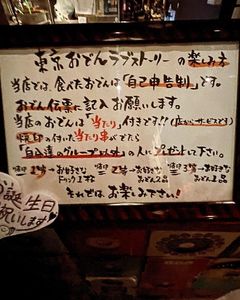 東京おでんラブストーリーの楽しみ方
当店では、食べたおでんは「自己申告制」です。
おでん伝票に記入お願いします。
当店のおでんは「当たり」付きです!!(店からサービスです)
焼印の付いた当り串がでたら
「自分達のグループ以外」の人にプレゼントして下さい。
1等→お好きな
ドリンク1杯
2等→お好きな
おでん2品
3等→お好きな
おでん1品
それでは、お楽しみ下さい!
誕生日
祝いします